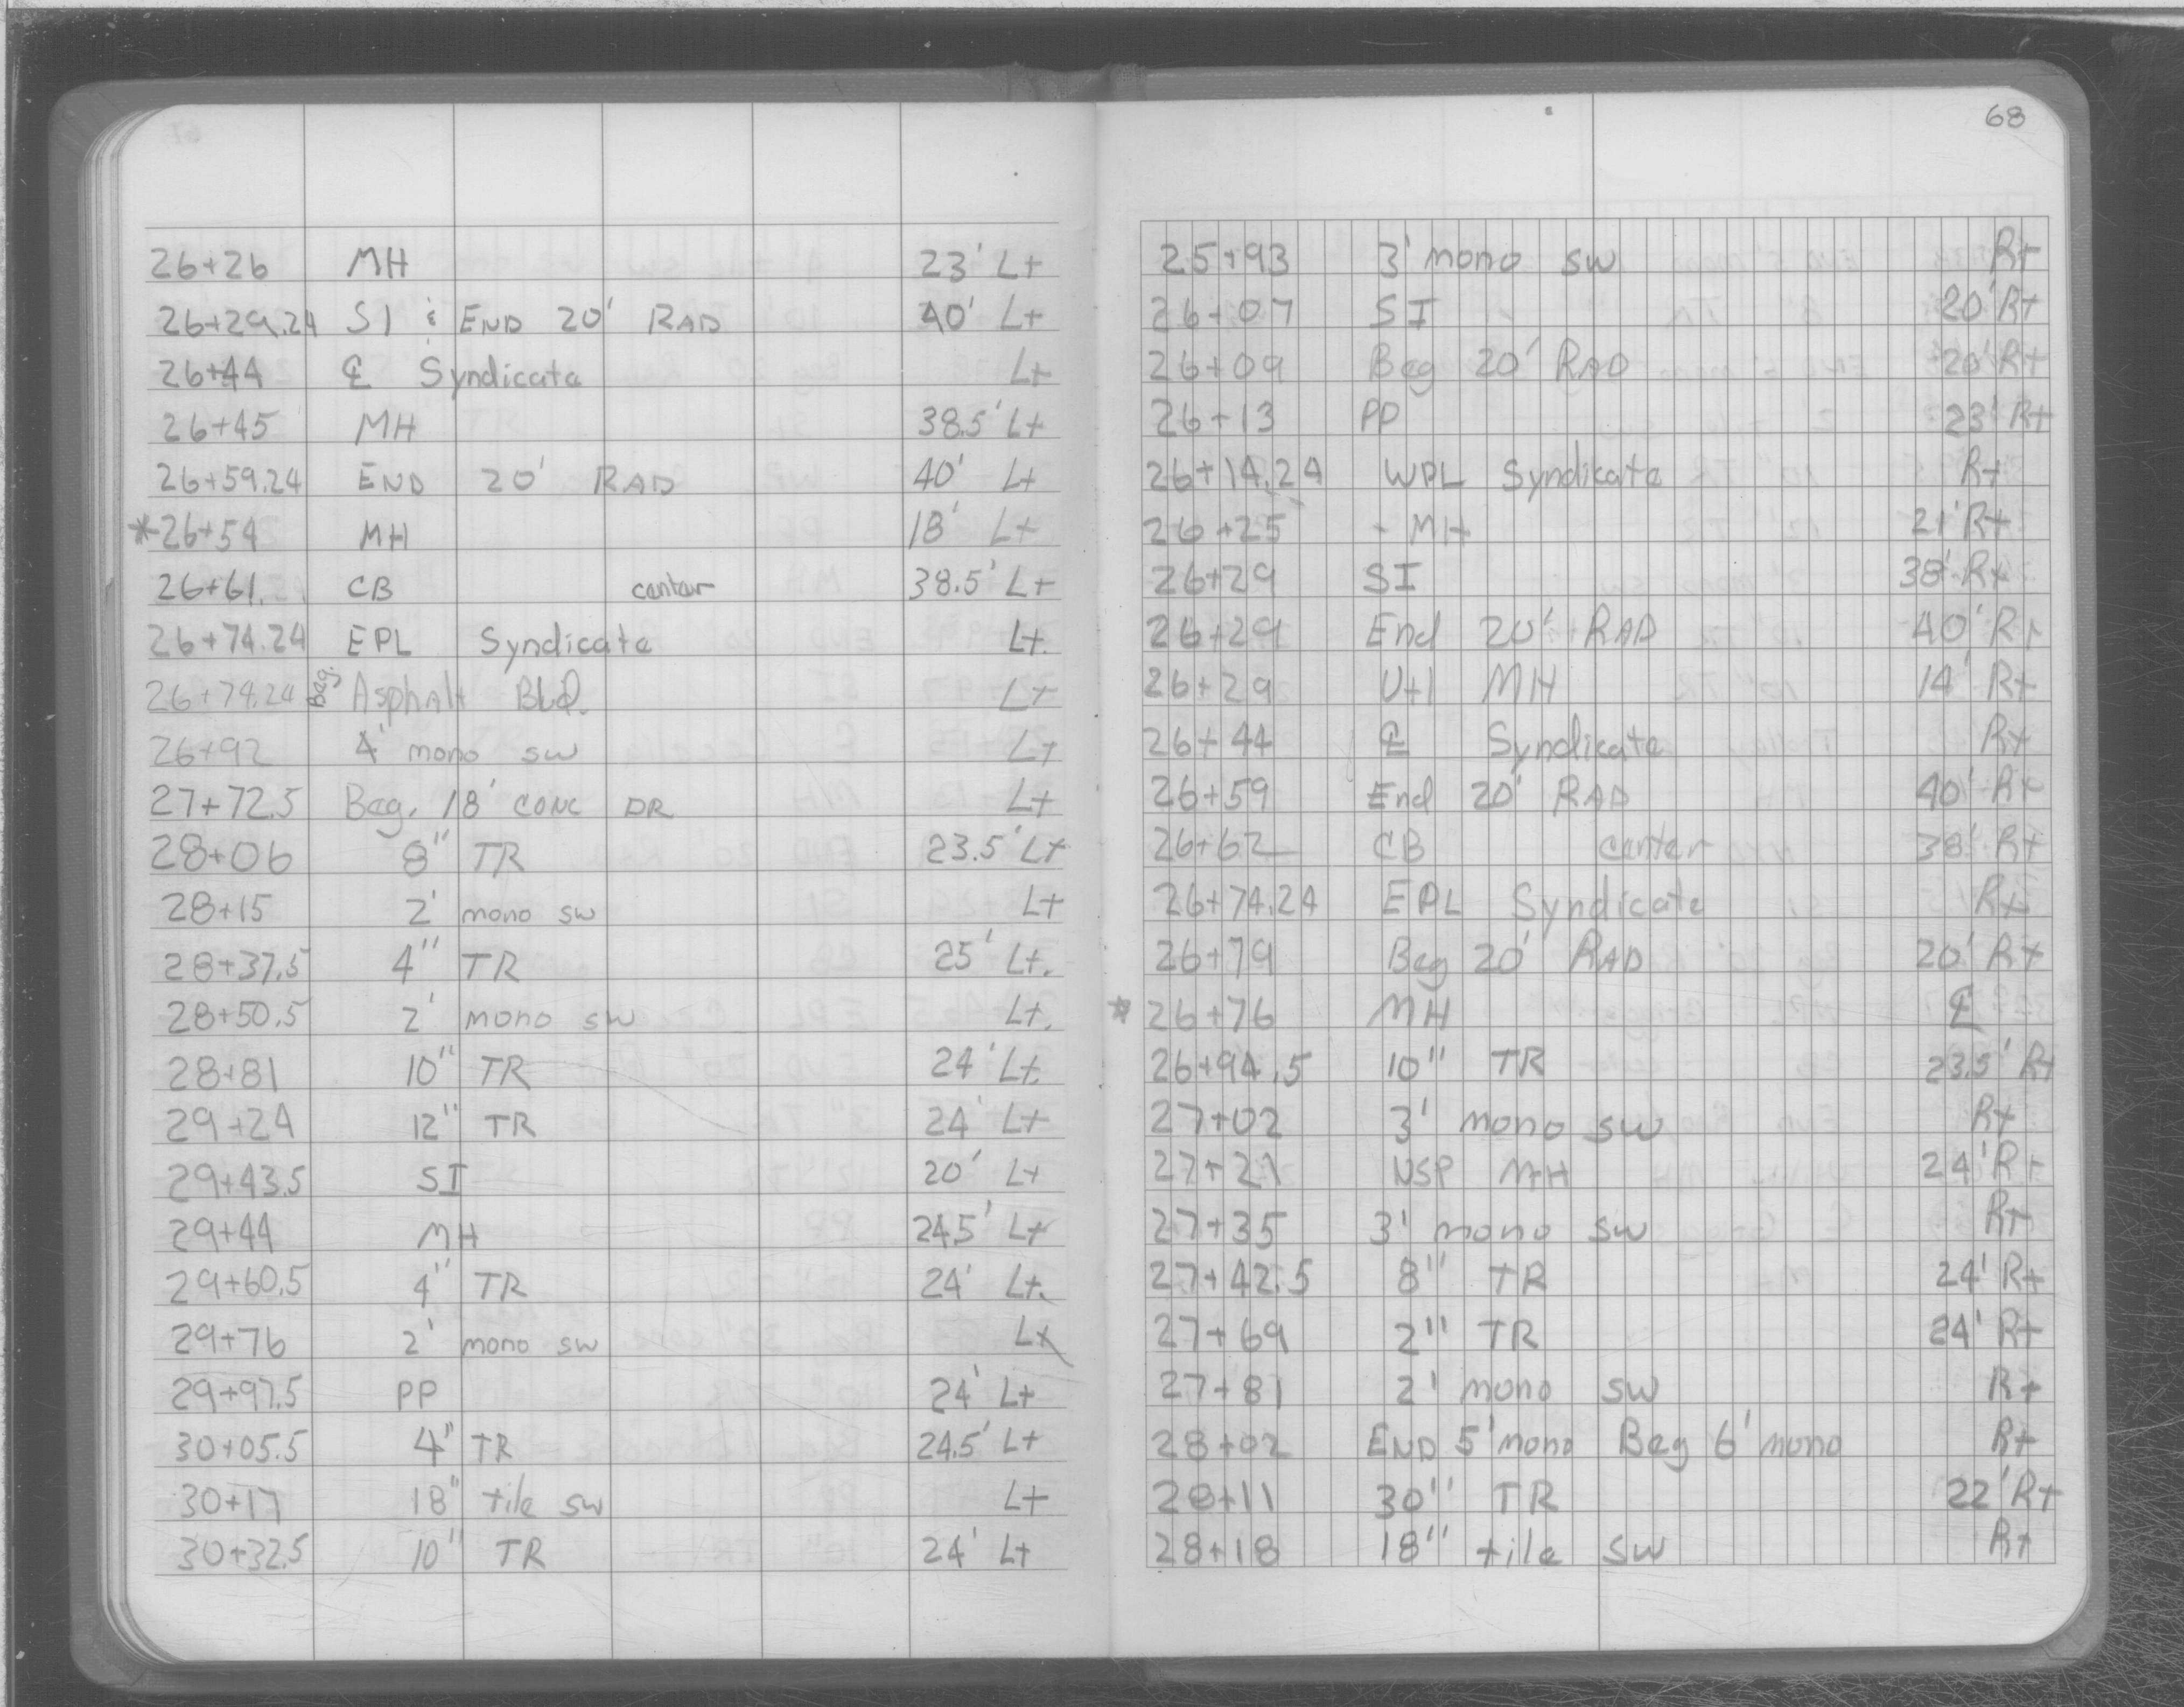 26+26 MH 23' Lt
26+29.24 SI & END 20' RAD 40' Lt
26+44 ℄ Syndicate Lt
26+45 MH 38.5' Lt
26+59.24 END 20' RAD 40' Lt
*26+54 MH 18' Lt
26+61. CB center 38.5' Lt
26+74.24 EPL Syndicate Lt.
26+74.24 Beg. Asphalt Blvd. Lt
26+92 4' mono sw Lt
27+72.5 Beg. 18' CONC DR Lt
28+06 8" TR 23.5' Lt
28+15 2' mono sw Lt
28+37.5 4" TR 25' Lt.
28+50.5 2' mono sw Lt.
28+81 10" TR 24' Lt.
29+24 12" TR 24' Lt
29+43.5 SI 20' Lt
29+44 MH 24.5' Lt
29+60.5 4" TR 24' Lt.
29+76 2' mono sw Lt
29+97.5 PP 24' Lt
30+05.5 4" TR 24.5' Lt
30+17 18" tile sw Lt
30+32.5 10" TR 24' Lt
68
25+93 3' mono sw Rt
26+07 SI 20' Rt
26+09 Beg 20' RAD 20' Rt
26+13 PP 23' Rt
26+14.24 WPL Syndicate Rt
26+25 - MH 21' Rt
26+29 SI 38' Rt
26+29 End 20' RAD 40' Rt
26+29 Utl MH 14' Rt
26+44 ℄ Syndicate Rt
26+59 End 20' RAD 40' Rt
26+62 CB center 38' Rt
26+74.24 EPL Syndicate Rt
26+79 Beg 20' RAD 20' Rt
*26+76 MH ℄
26+94.5 10" TR 23.5' Rt
27+02 3' mono sw Rt
27+21 NSP MH 24' Rt
27+35 3' mono sw Rt
27+42.5 8" TR 24' Rt
27+69 2" TR 24' Rt
27+81 2' mono sw Rt
28+02 END 5' mono Beg 6' mono Rt
28+11 30" TR 22' Rt
28+18 18" tile sw Rt